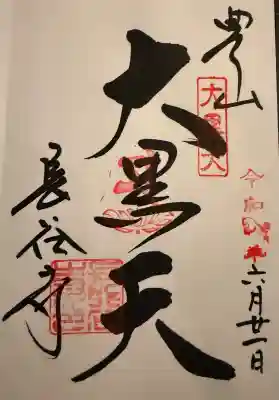 豊山
大黒天
令和 年六月廿一日
大黒天
長谷寺